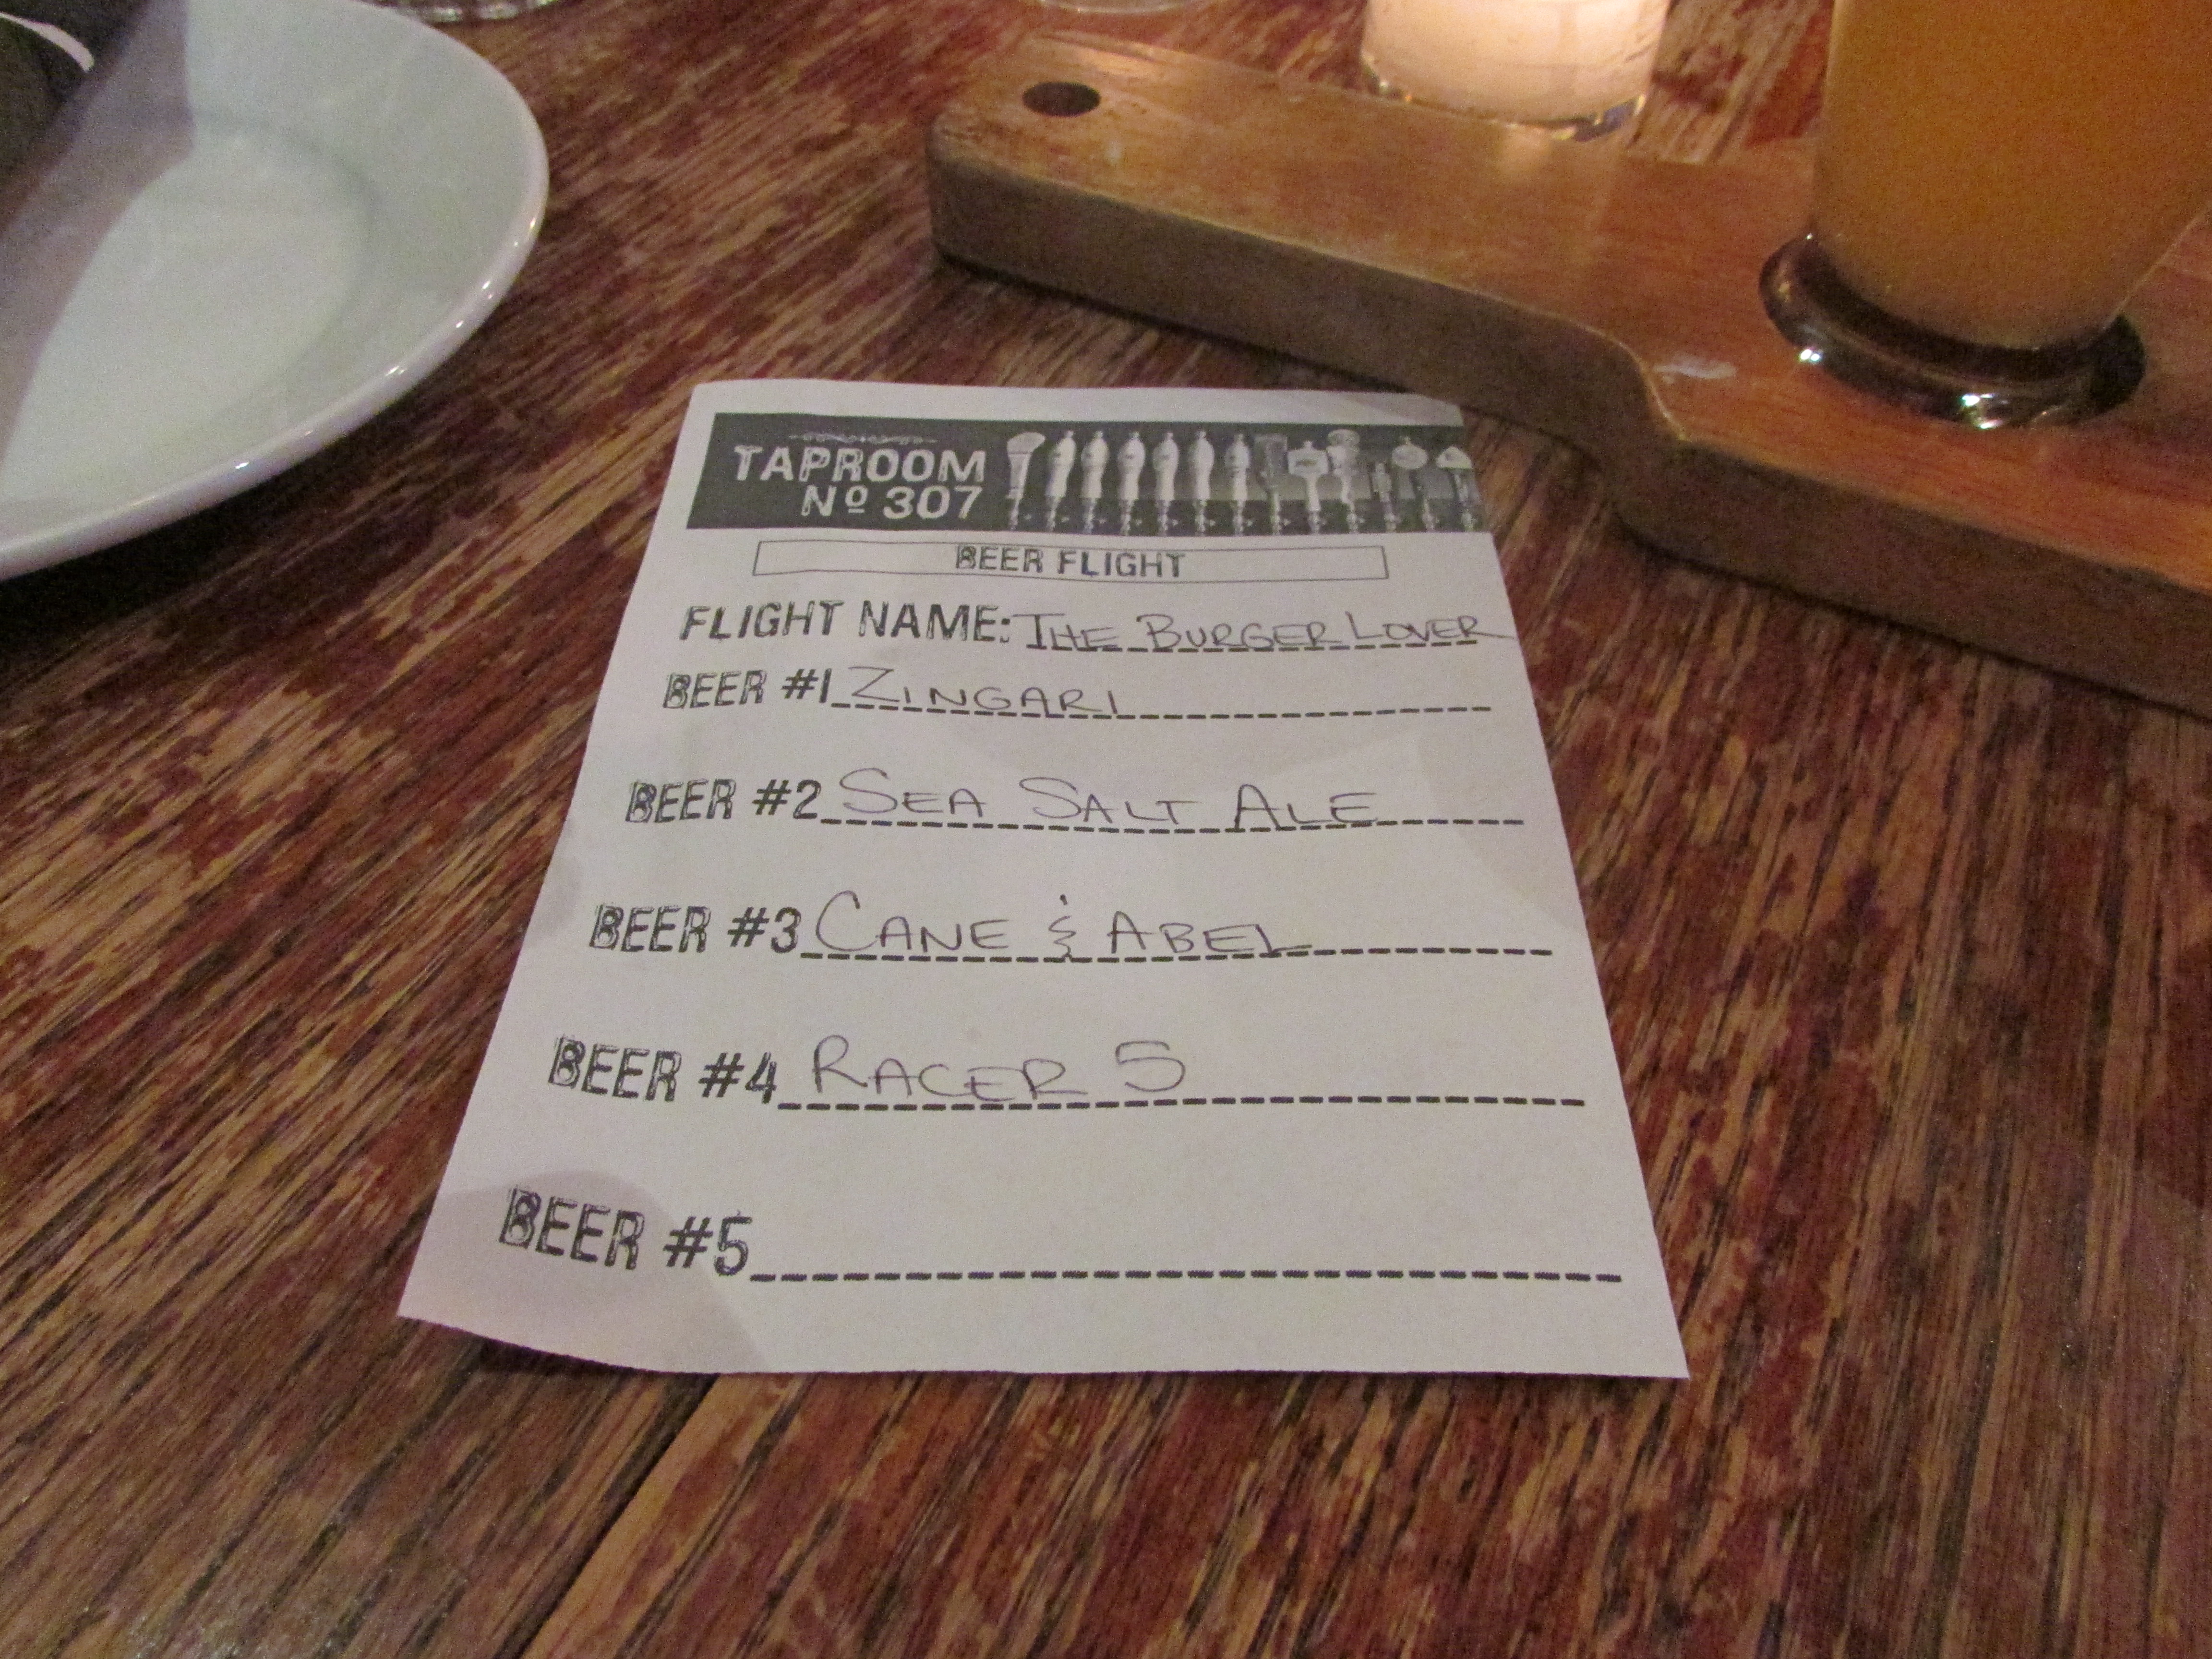 TAPROOM
Nº 307
BEER FLIGHT
FLIGHT NAME: THE BURGER LOVER
BEER #1 ZINGARI
BEER #2 SEA SALT ALE
BEER #3 CANE & ABEL
BEER #4 RACER 5
BEER #5